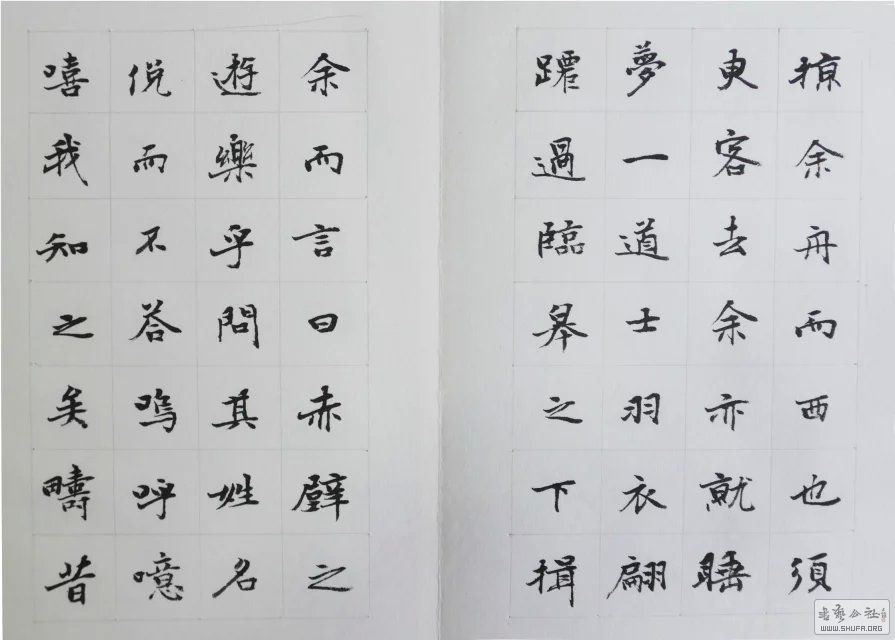 掠余舟而西也須
臾客去余亦就睡
夢一道士羽衣翩
躚過臨皋之下揖
余而言曰赤壁之
遊樂乎問其姓名
俛而不答嗚呼噫
嘻我知之矣疇昔
书艺公社
WWW.SHUFA.ORG